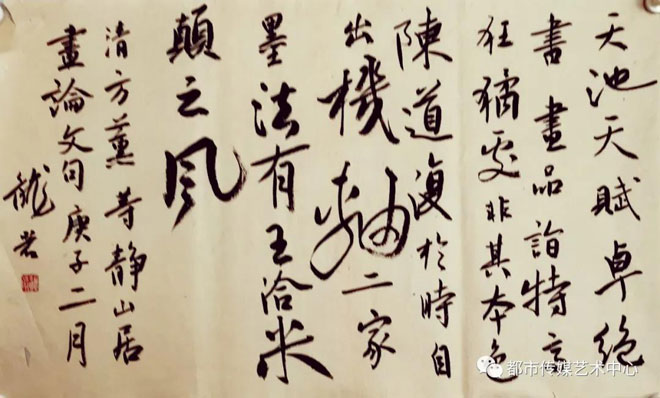 天池天賦卓絕
書畫品詣特高
狂獝處非其本色
陳道復於時自
出機軸二家
墨法有王洽米
顛之風
清方薰著静山居
畫論文句庚子二月
龍
都市传媒艺术中心